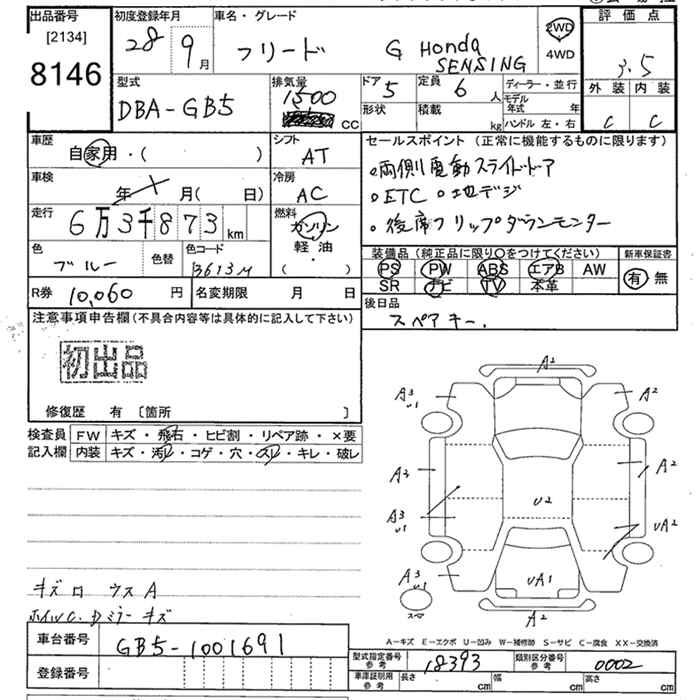 出品番号 初度登録年月 車名・グレード 評価点
[2134]
8146
28 9月 フリード G Honda SENSING
2WD
4WD
3.5
外装 内装
C C
型式 排気量 ドア 定員 ディーラー・並行
DBA-GB5 1500 cc 5 6人
モデル年式 年
形状 積載 kg ハンドル 左・右
車歴 シフト セールスポイント(正常に機能するものに限ります)
自家用・( ) AT
・両側電動スライドドア
車検 冷房
年 月( 日) AC
・ETC ・地デジ
走行 燃料
6万3千873km ガソリン
・後席フリップダウンモニター
軽油
・( )
色 色替 色コード
ブルー B613M
装備品(純正品に限り○をつけてください) 新車保証書
PS PW ABS エアB AW 有・無
SR ナビ TV 本革
R券 10,060円 名変期限 月 日
後日品
スペアキー.
注意事項申告欄(不具合内容等は具体的に記入して下さい)
初出品
修復歴 有 〔箇所 〕
検査員 FW キズ・飛石・ヒビ割・リペア跡・×要
記入欄 内装 キズ・汚レ・コゲ・穴・スレ・キレ・破レ
A2
A3 U1
A2
A3
A2
A3 U1
U2
UA2
A3 U1
UA1
スペア
A2
キズロ ウスA
ホイルC. Dミラーキズ
A-キズ E-エクボ U-凹み W-補修跡 S-サビ C-腐食 XX-交換済
車台番号 GB5-1001691
型式指定番号 参考 18393 類別区分番号 参考 0002
登録番号
車庫証明用 参考 長さ cm 幅 cm 高さ cm